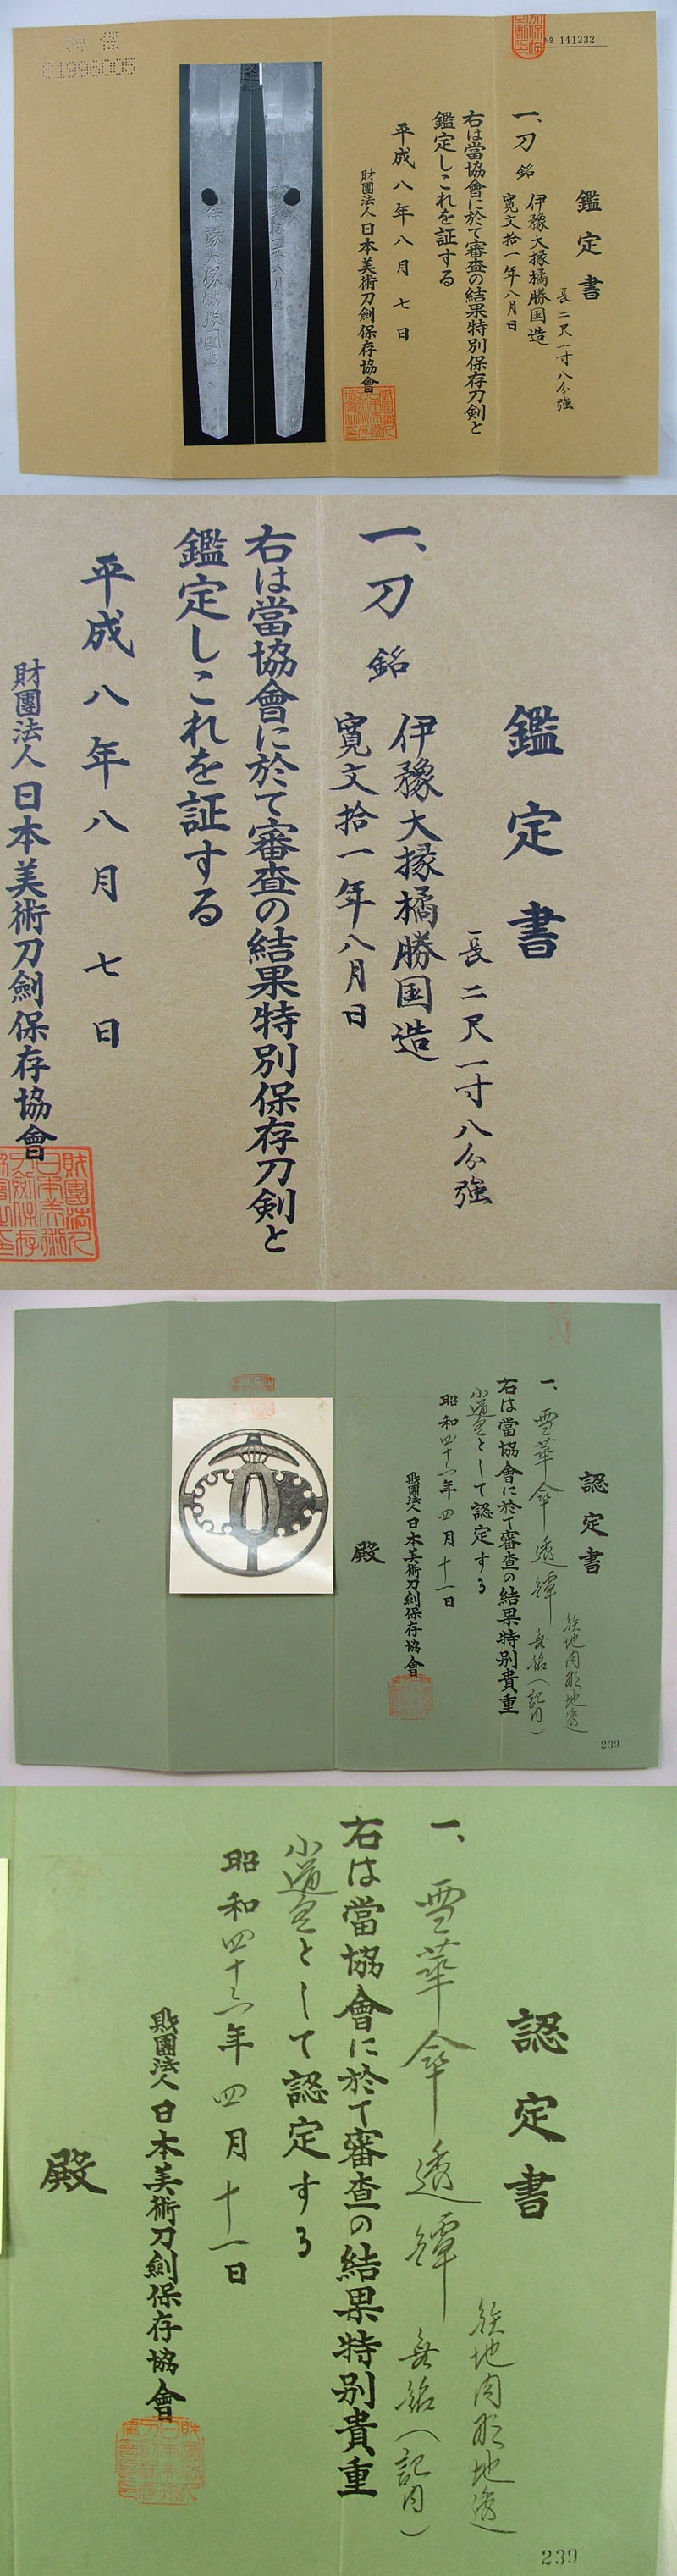 特 保
81996005
№ 141232
鑑定書
長二尺一寸八分強
一、刀 銘 伊豫大掾橘勝国造
寛文拾一年八月日
右は當協會に於て審査の結果特別保存刀剣と
鑑定しこれを証する
平成八年八月七日
財團法人日本美術刀劍保存協會
伊豫大掾橘勝國造
鑑定書
長二尺一寸八分強
一、刀 銘 伊豫大掾橘勝国造
寛文拾一年八月日
右は當協會に於て審査の結果特別保存刀剣と
鑑定しこれを証する
平成八年八月七日
財團法人日本美術刀劍保存協會
認定書
鉄地肉彫地透
一、雪華傘透鐔 無銘(記内)
右は當協會に於て審査の結果特別貴重
小道具として認定する
昭和四十六年四月十一日
財團法人日本美術刀劍保存協會
殿
239
認定書
鉄地肉彫地透
一、雪華傘透鐔 無銘(記内)
右は當協會に於て審査の結果特別貴重
小道具として認定する
昭和四十六年四月十一日
財團法人日本美術刀劍保存協會
殿
239